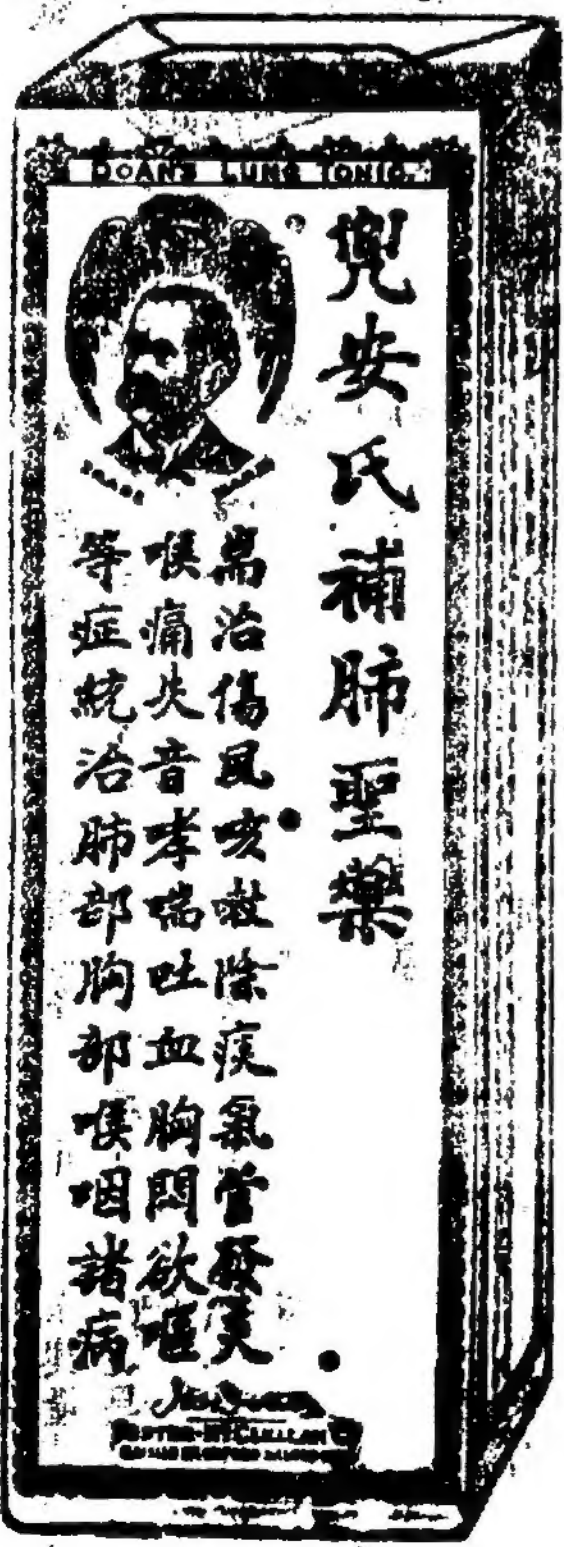 DOAN'S LUNG TONIC.
兜安氏補肺聖藥
耑治傷風咳嗽除痰氣管發炎
喉痛失音哮喘吐血胸悶欲嘔
等症統治肺部胸部喉咽諸病
FOSTER-McCLELLAN Co